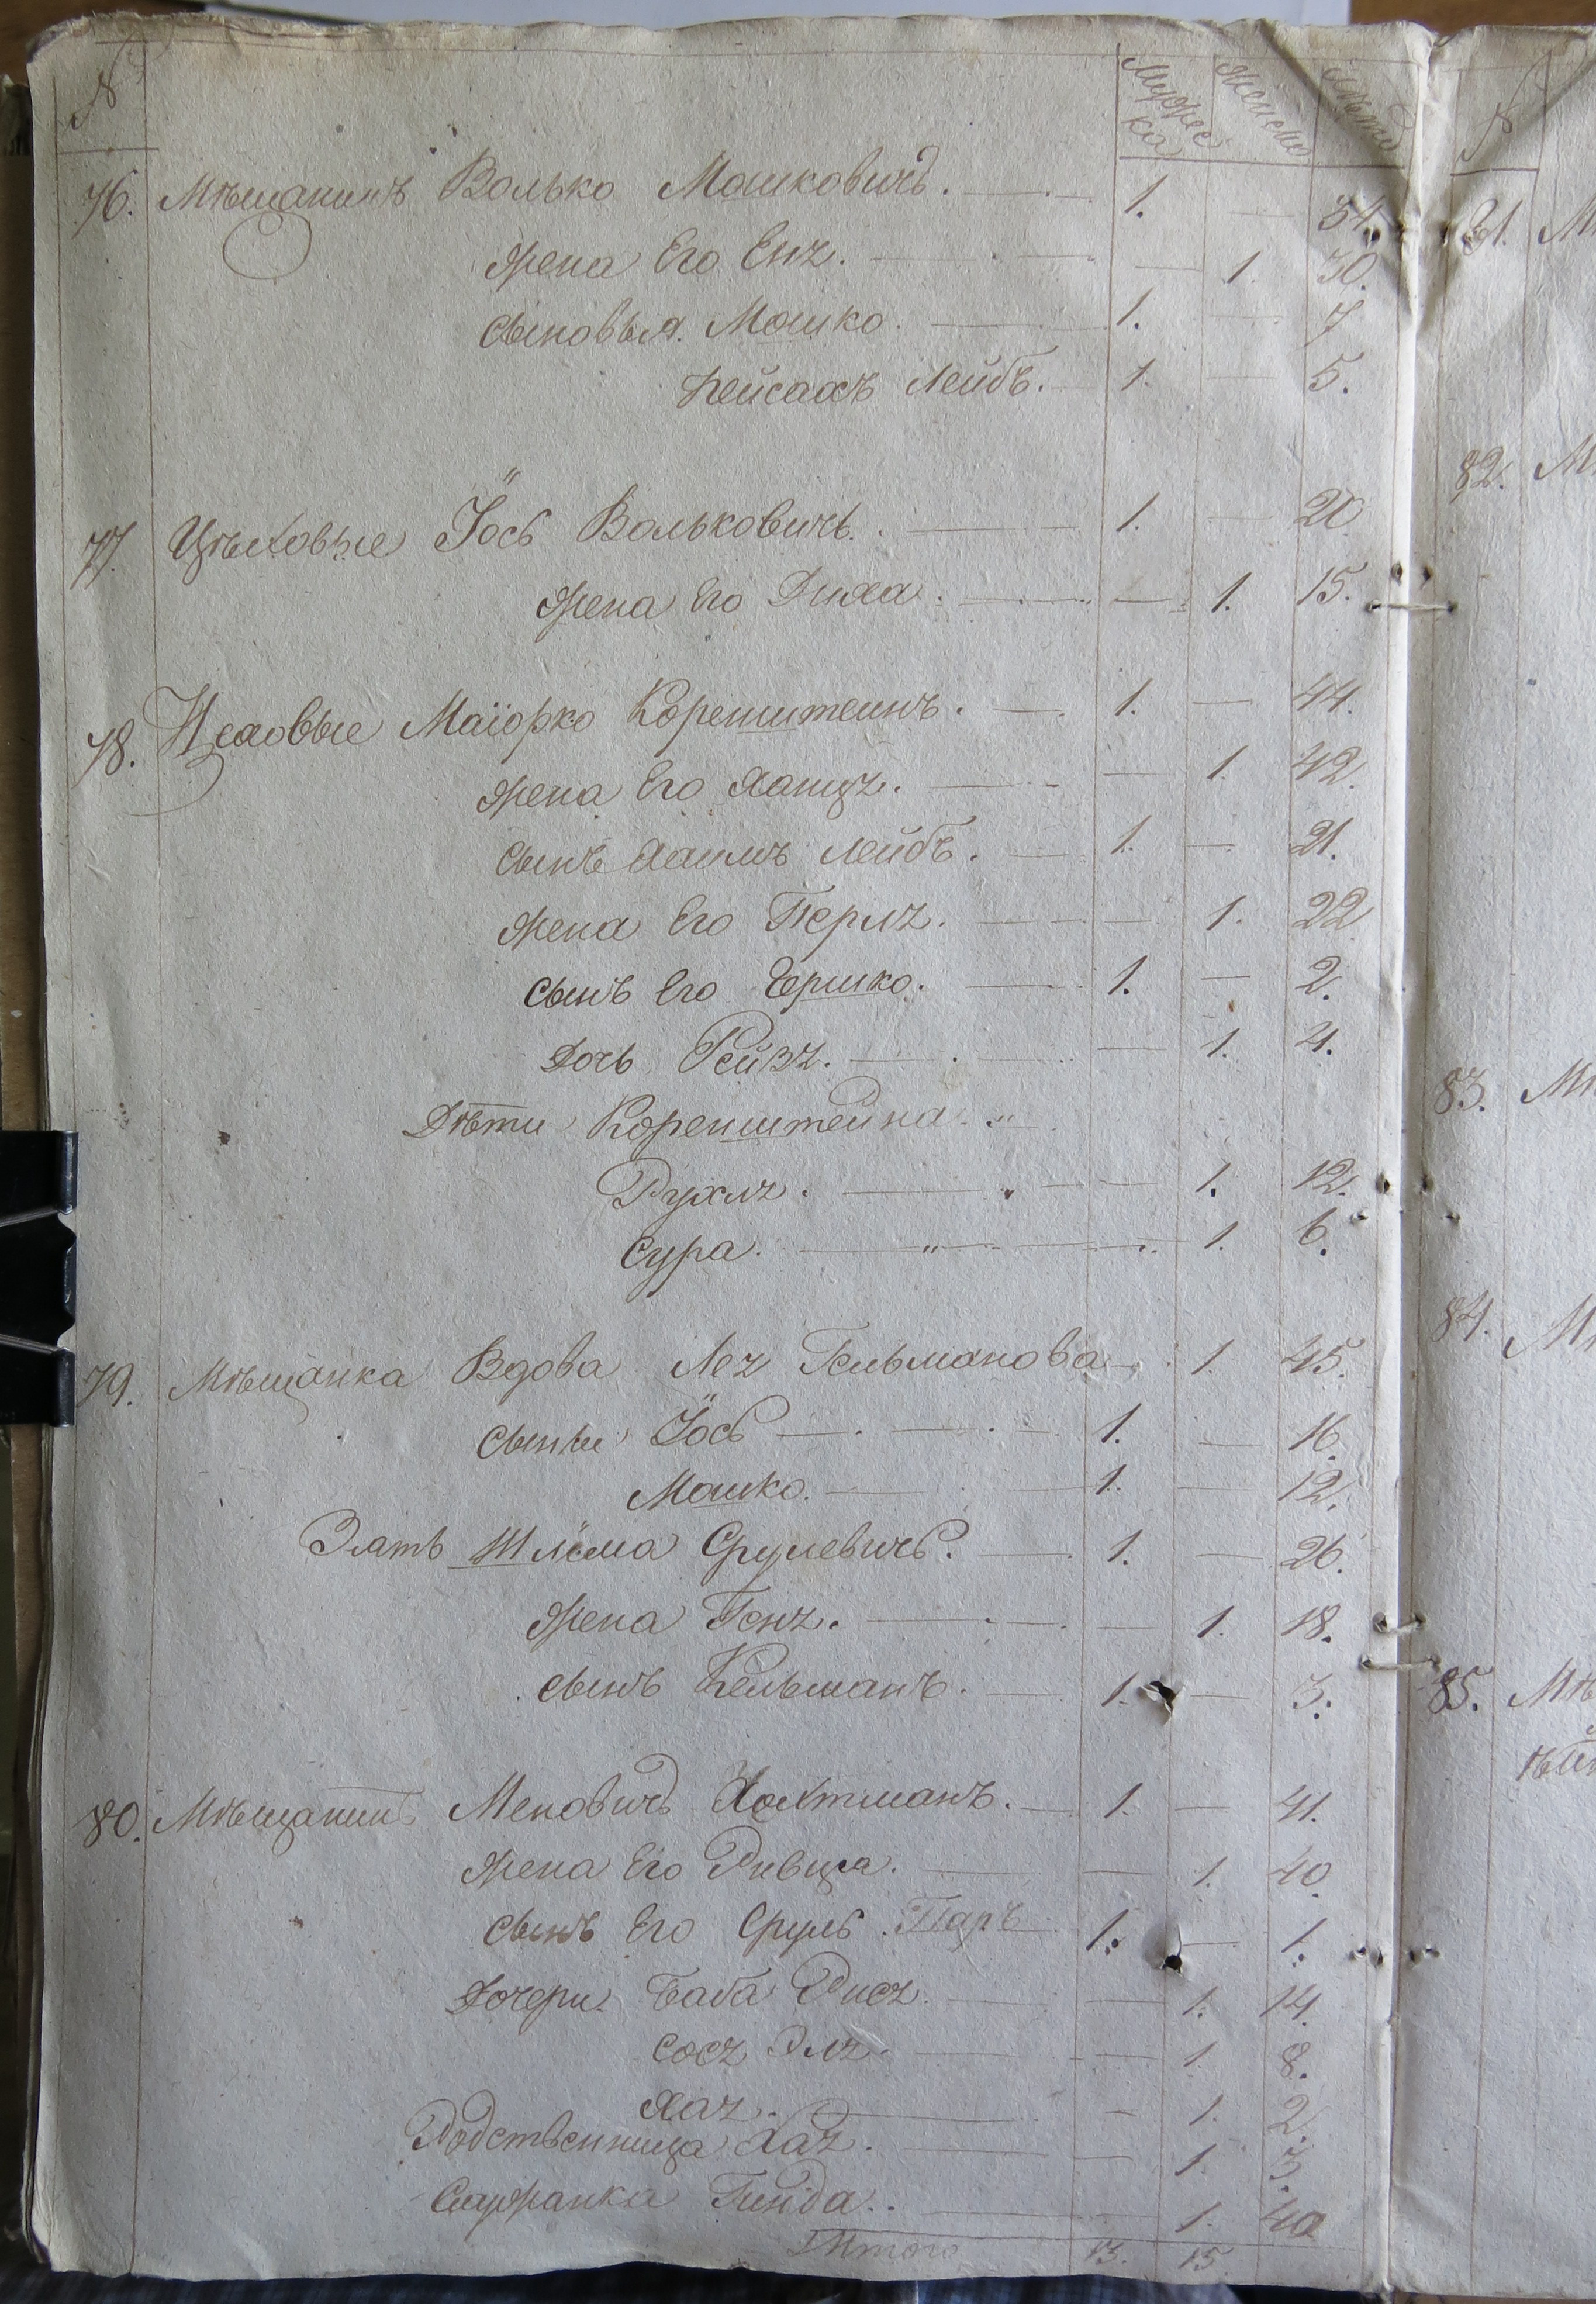 № Мужеска Женска Лѣта
76. Мѣщанинъ Волько Мошковичъ. 1. — 54.
Жена Его Енэ. — 1. 50.
Сыновья. Мошко. 1. — 7
Пейсахъ Лейбъ. 1. — 5.
77. Цѣховые Іось Вольковичъ. 1. — 20
Жена Его Диха. — 1. 15.
78. Цеховые Маіорко Коренштеинъ. 1. — 44.
Жена Его Ханцэ. — 1. 42.
Сынъ Хаимъ Лейбъ. 1. — 21.
Жена Его Перлэ. — 1. 22
Сынъ Его Гершко. 1. — 2.
Дочь Рейзэ. — 1. 4.
Дѣти Коренштейна
Рухлэ. — 1. 12.
Сура. — 1. 6.
79. Мѣщанка Вдова Леэ Гельманова 1. 45.
Сыны Іось 1. — 16.
Мошко. 1. — 12.
Зять Шлёма Срулевичъ. 1. — 26.
Жена Генэ. — 1. 18.
Сынъ Кельманъ. 1. — 3.
80. Мѣщанинъ Меновичъ Хохтманъ. 1. — 41.
Жена Его Ривца. — 1. 40.
Сынъ Его Сруль 1. — 1.
Дочери Баба Рисэ — 1. 14.
Сосэ Элэ. — 1. 8.
Хаэ. — 1. 2.
Родственница Хаэ. — 1. 3.
Служанка Гинда. 1. 40
Итого 13. 15.
№
81. М
82. М
83. Мѣ
84. М
85. Мѣ